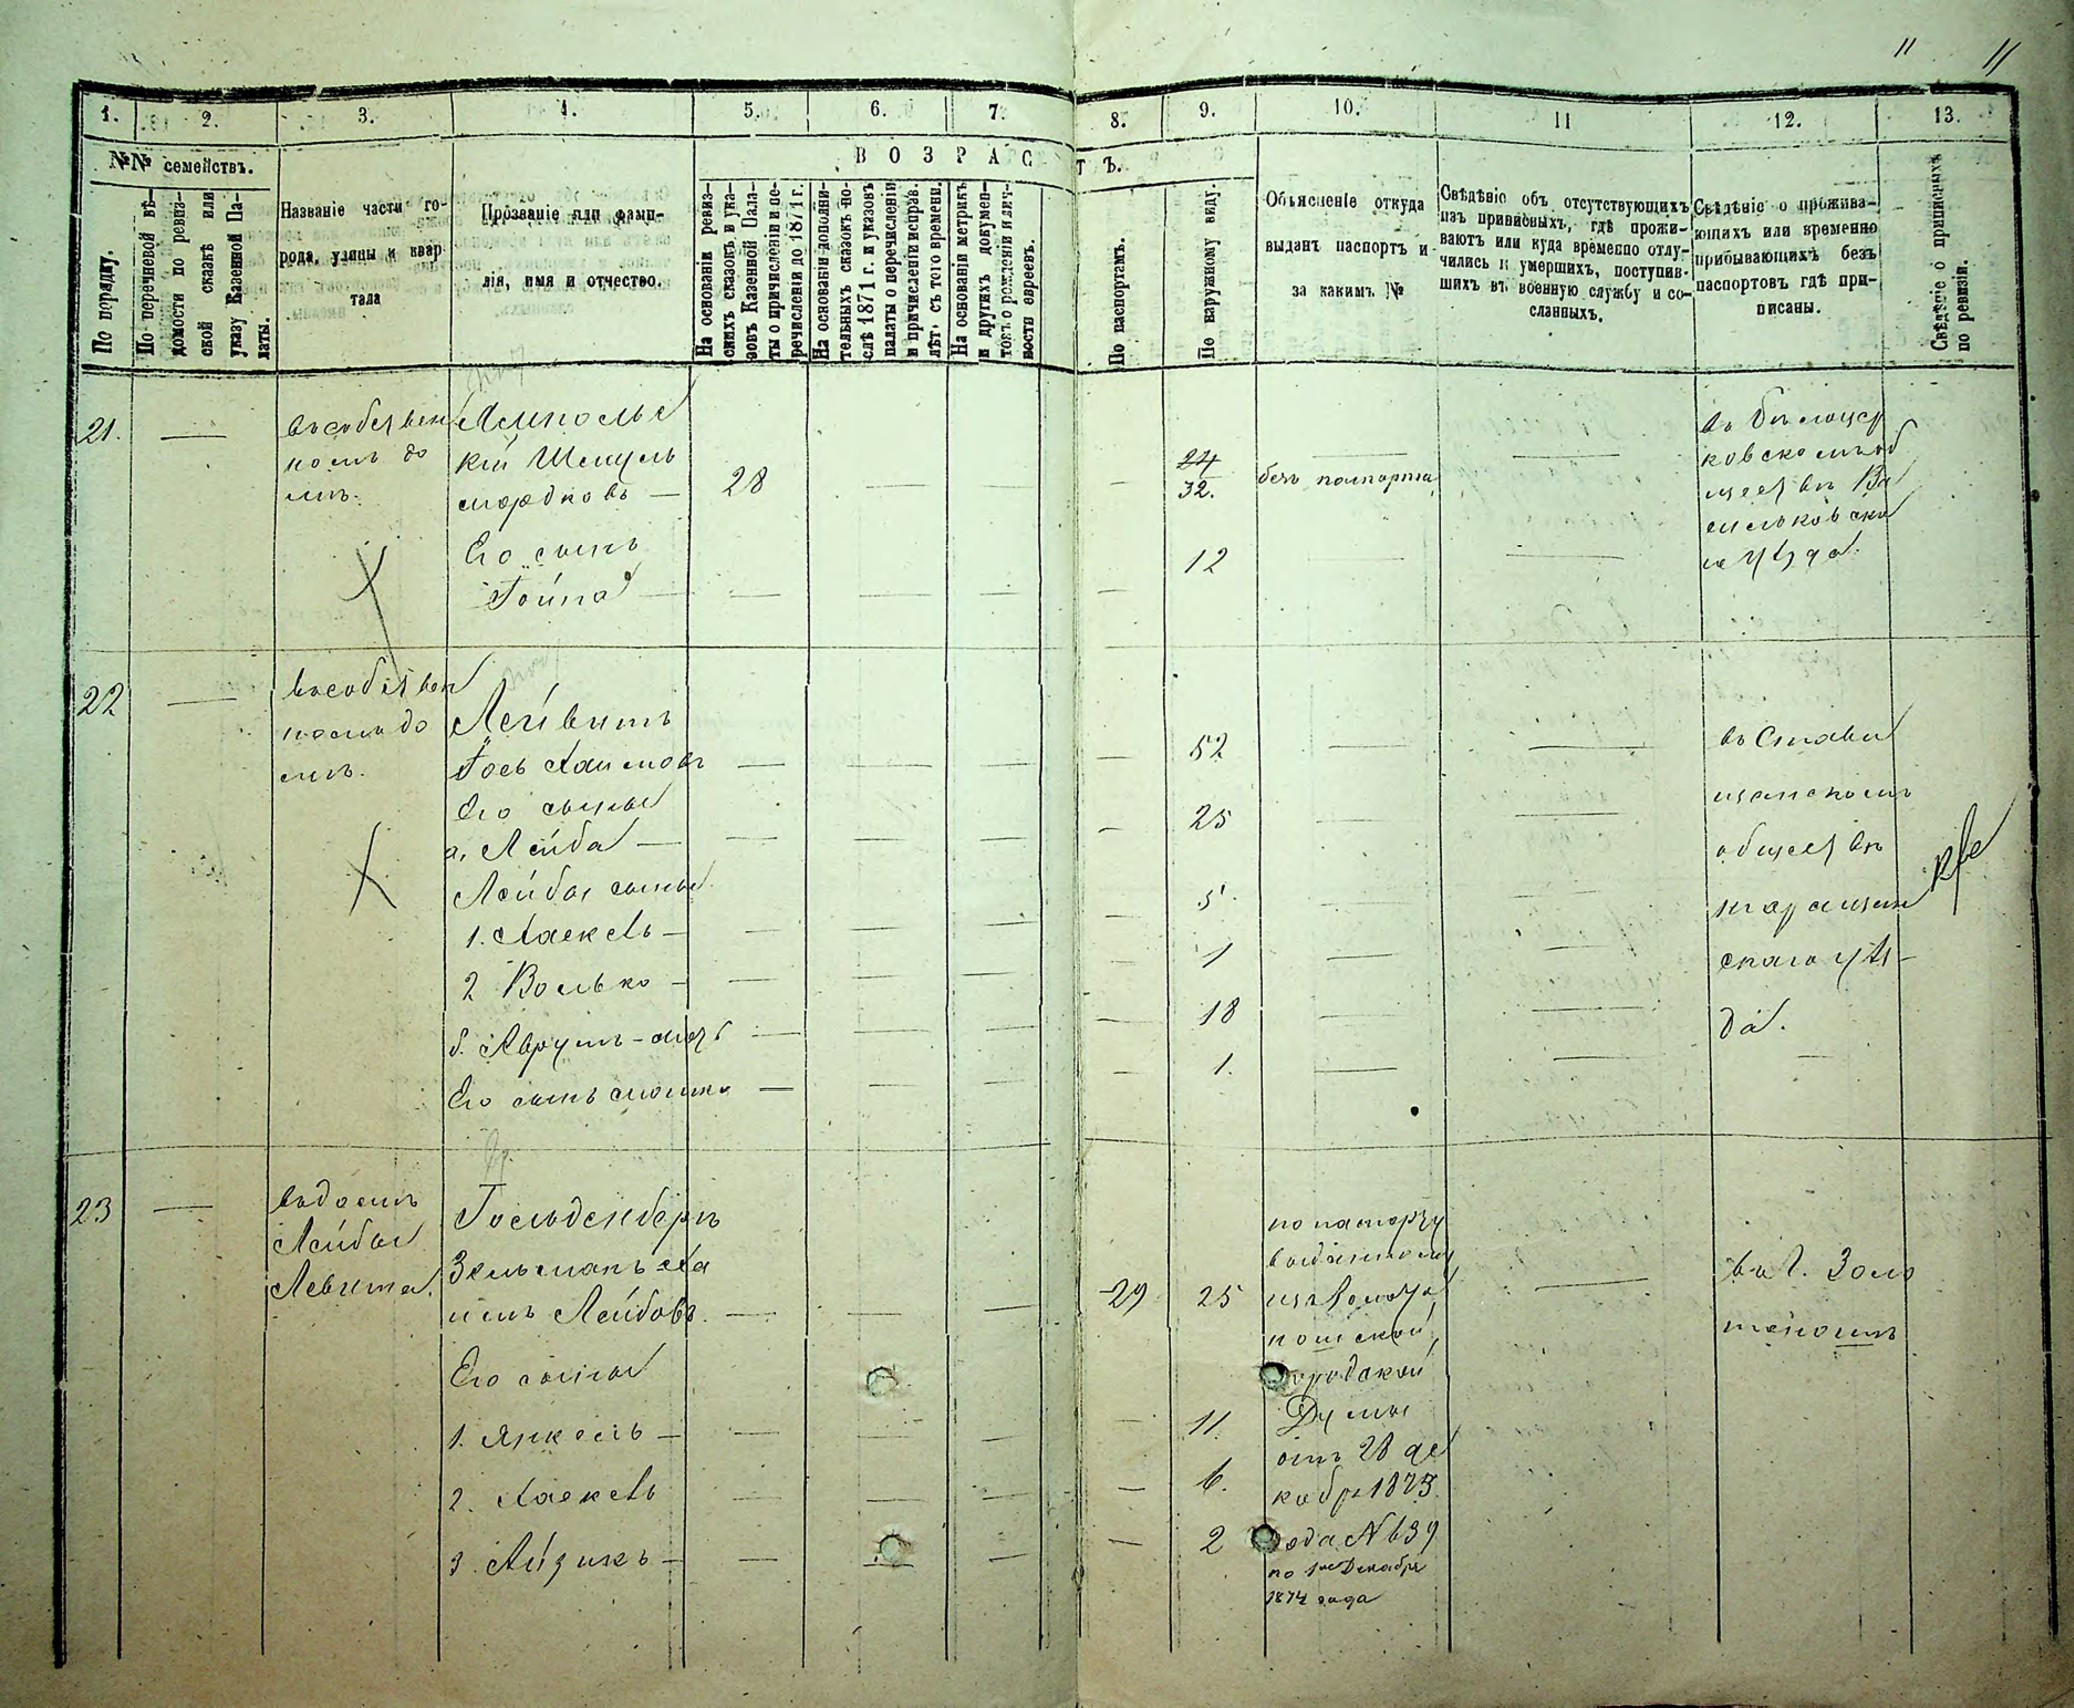 11 11
1. 2. 3. 4. 5. 6. 7. 8. 9. 10. 11 12. 13.
№№ семействъ.
ВОЗРАСТЪ.
По порядку.
По перечневой вѣ-
домости по ревиз-
ской сказкѣ или
указу Казенной Па-
латы.
Названіе части го-
рода, улицы и квар
тала
Прозваніе или фами-
лія, имя и отчество.
На основаніи ревиз-
скихъ сказокъ и ука-
зовъ Казенной Пала-
ты о причисленіи и пе-
речисленіи до 1871 г.
На основаніи дополни-
тельныхъ сказокъ по-
слѣ 1871 г. и указовъ
палаты о перечисленіи
и причисленіи исправ.
лѣт. съ того времени.
На основаніи метрикъ
и другихъ докумен-
товъ о рожденіи и лич-
ности евреевъ.
По паспортамъ.
По наружному виду.
Объясненіе откуда
выданъ паспортъ и
за какимъ №
Свѣдѣніе объ отсутствующихъ
изъ приписныхъ, гдѣ прожи-
ваютъ или куда временно отлу-
чились и умершихъ, поступив-
шихъ въ военную службу и со-
сланныхъ.
Свѣдѣніе о прожива-
ющихъ или временно
прибывающихъ безъ
паспортовъ гдѣ при-
писаны.
Свѣдѣніе о приписныхъ
по ревизіи.
21.
въ собствен
номъ до
мѣ.
кій Шмуль
мордковъ — 28
24
32.
безъ паспорта
Его сынъ
12
въ бѣлоцер
ковскомъ об
щест вѣ Ва
сильковска
го Уѣзда.
22
въ собствен
номъ до
мѣ.
Лейвитъ
Гось Хаимовъ
52
Его сыны
а. Лейба — 25
Лейбы сыны
1. Хаскель — 5
2 Волько — 1
б. Аврум-ицъ 18
Его сынъ мошко 1.
въ Стави
щанскомъ
общест вѣ
таращан
скаго уѣз-
да.
23
въ домѣ
Лейбы
Левита.
Гольденбергъ
Зельманъ-Ха
имъ Лейбовъ. 29 25
Его сыны
1. Янкель — 11.
2. Хаскель 6.
3. Айзикъ — 2
по паспорту
выданному
изъ Золото
ношской
городской
Думы
отъ 28 де
кабря 1873
года № 639
по 1ое Декабря
1874 года
въ г. Золо
тоношѣ